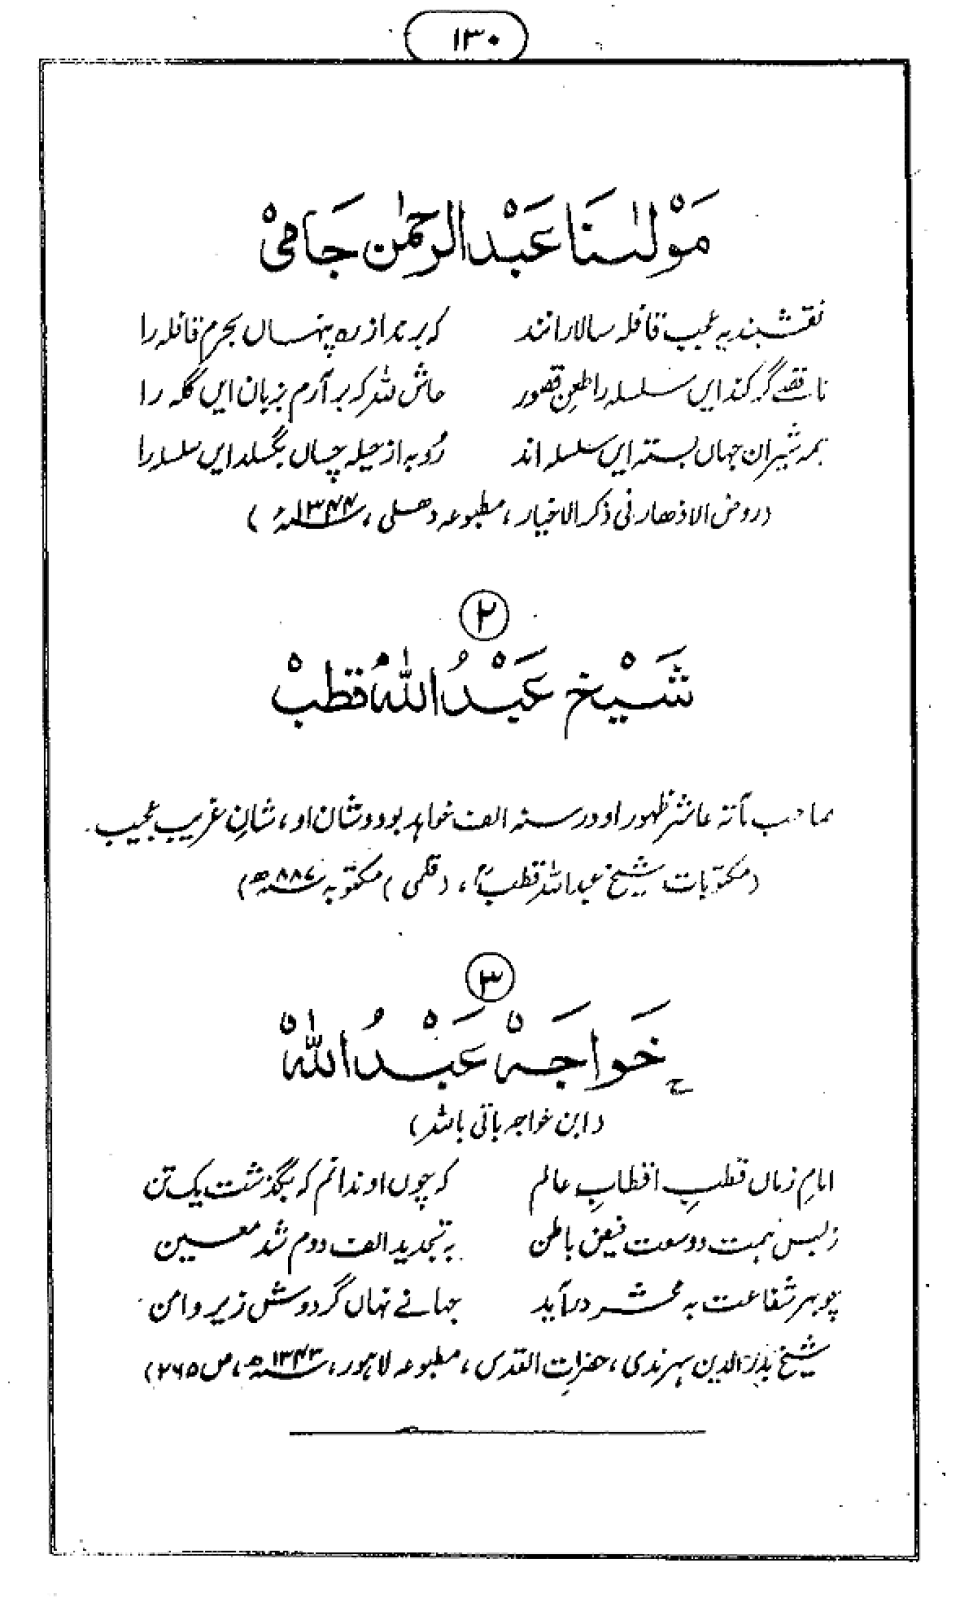 ۱۳۰
مَوْلٰنَا عَبْدالرحمٰن جَامیْ
نقشبندیہ عجب قافلہ سالارانند کہ برند از رہ پنہاں بحرم قافلہ را
ناقصے گر کند ایں سلسلہ را طعنِ قصور حاش للہ کہ بر آرم بزبان ایں گلہ را
ہمہ شیران جہاں بستہ ایں سلسلہ اند رُوبہ از حیلہ چساں بگسلد ایں سلسلہ را
(روض الازھار فی ذکر الاخیار، مطبوعہ دھلی، ۱۳۴۴ھ)
۲
شَیْخ عَبْدُ اللّٰہ قطبْ
صاحب مأتہ عاشر ظہور او در سنہ الف خواہد بود و شان او، شانِ غریب عجیب
(مکتوبات شیخ عبداللہ قطبؒ، (قلمی) مکتوبہ ۸۸۷ھ)
۳
خَواجَہْ عَبْدُ اللّٰہْ
(ابن خواجہ باقی باللہ)
امامِ زماں قطبِ اقطابِ عالم کہ چوں او ندانم کہ بگذشت یک تن
زبس ہمت و وسعت فیض باطن بہ تجدید الف دوم شد معین
چو بہر شفاعت بہ محشر در آید جہانے نہاں گرددش زیر دامن
شیخ بدرالدین سہرندی، حضرات القدس، مطبوعہ لاہور، ۱۳۴۳ھ، ص ۲۶۵)